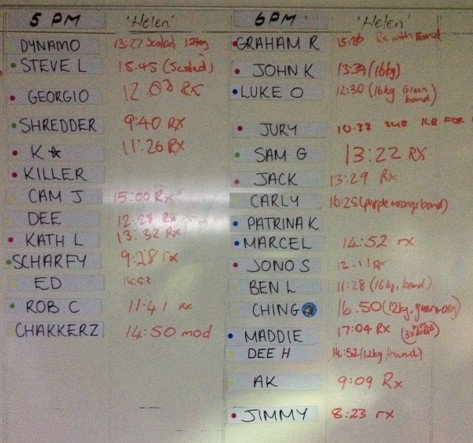 5 PM 'Helen' 6 PM 'Helen'
DYNAMO 13:27 Scaled 12kg
STEVE L 15:45 (Scaled)
GEORGIO 12:03 RX
SHREDDER 9:40 RX
K 11:26 RX
KILLER
CAM J 15:00 Rx
DEE 12:28 Rx
KATH L 13:32 RX
SCHARFY 9:28 rx
ED
ROB C 11:41 Rx
CHAKKERZ 14:50 mod
GRAHAM R Rx with Band
JOHN K 13:39 (16kg)
LUKE O 12:30 (16kg Green band)
JURY 10:38 sub KB FOR
SAM G 13:22 RX
JACK 13:29 RX
CARLY 10:25 (purple+orange band)
PATRINA K
MARCEL 14:52 rx
JONO S 12:11 Rx
BEN L 11:28 (16kg, band)
CHING 16.50 (12kg,
MADDIE 17:04 RX
DEE H 14:52 (12kg/band)
AK 9:09 Rx
JIMMY 8:23 rx